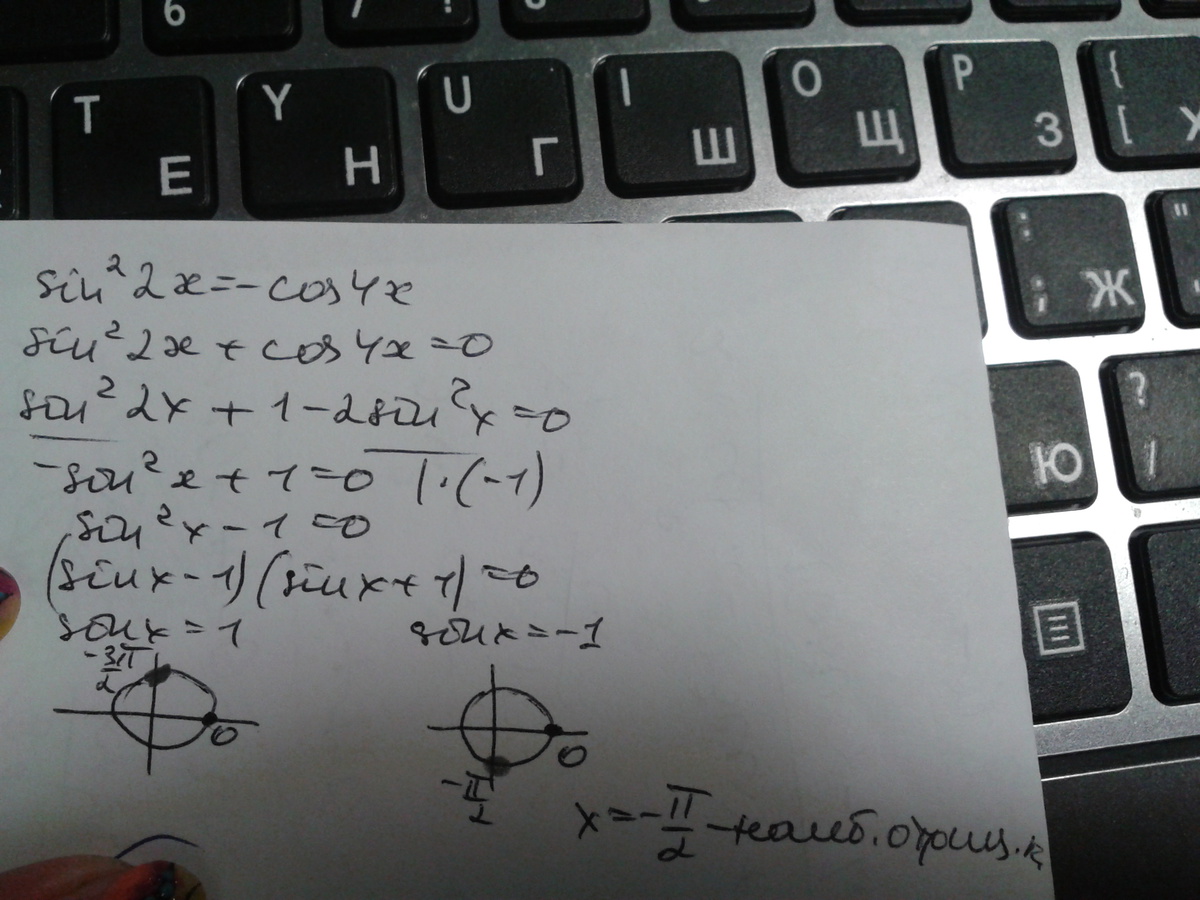 6 7 !
T Е Y Н U Г I Ш O Щ P З { [ Х
: ; Ж "
Ю ? /
sin² 2x = - cos 4x
sin² 2x + cos 4x = 0
sin² 2x + 1 - 2 sin² x = 0
- sin² x + 1 = 0 | · (-1)
sin² x - 1 = 0
(sin x - 1) (sin x + 1) = 0
sin x = 1 sin x = -1
-3π/2 0
0 -π/2
x = -π/2 - наиб. отриц. к